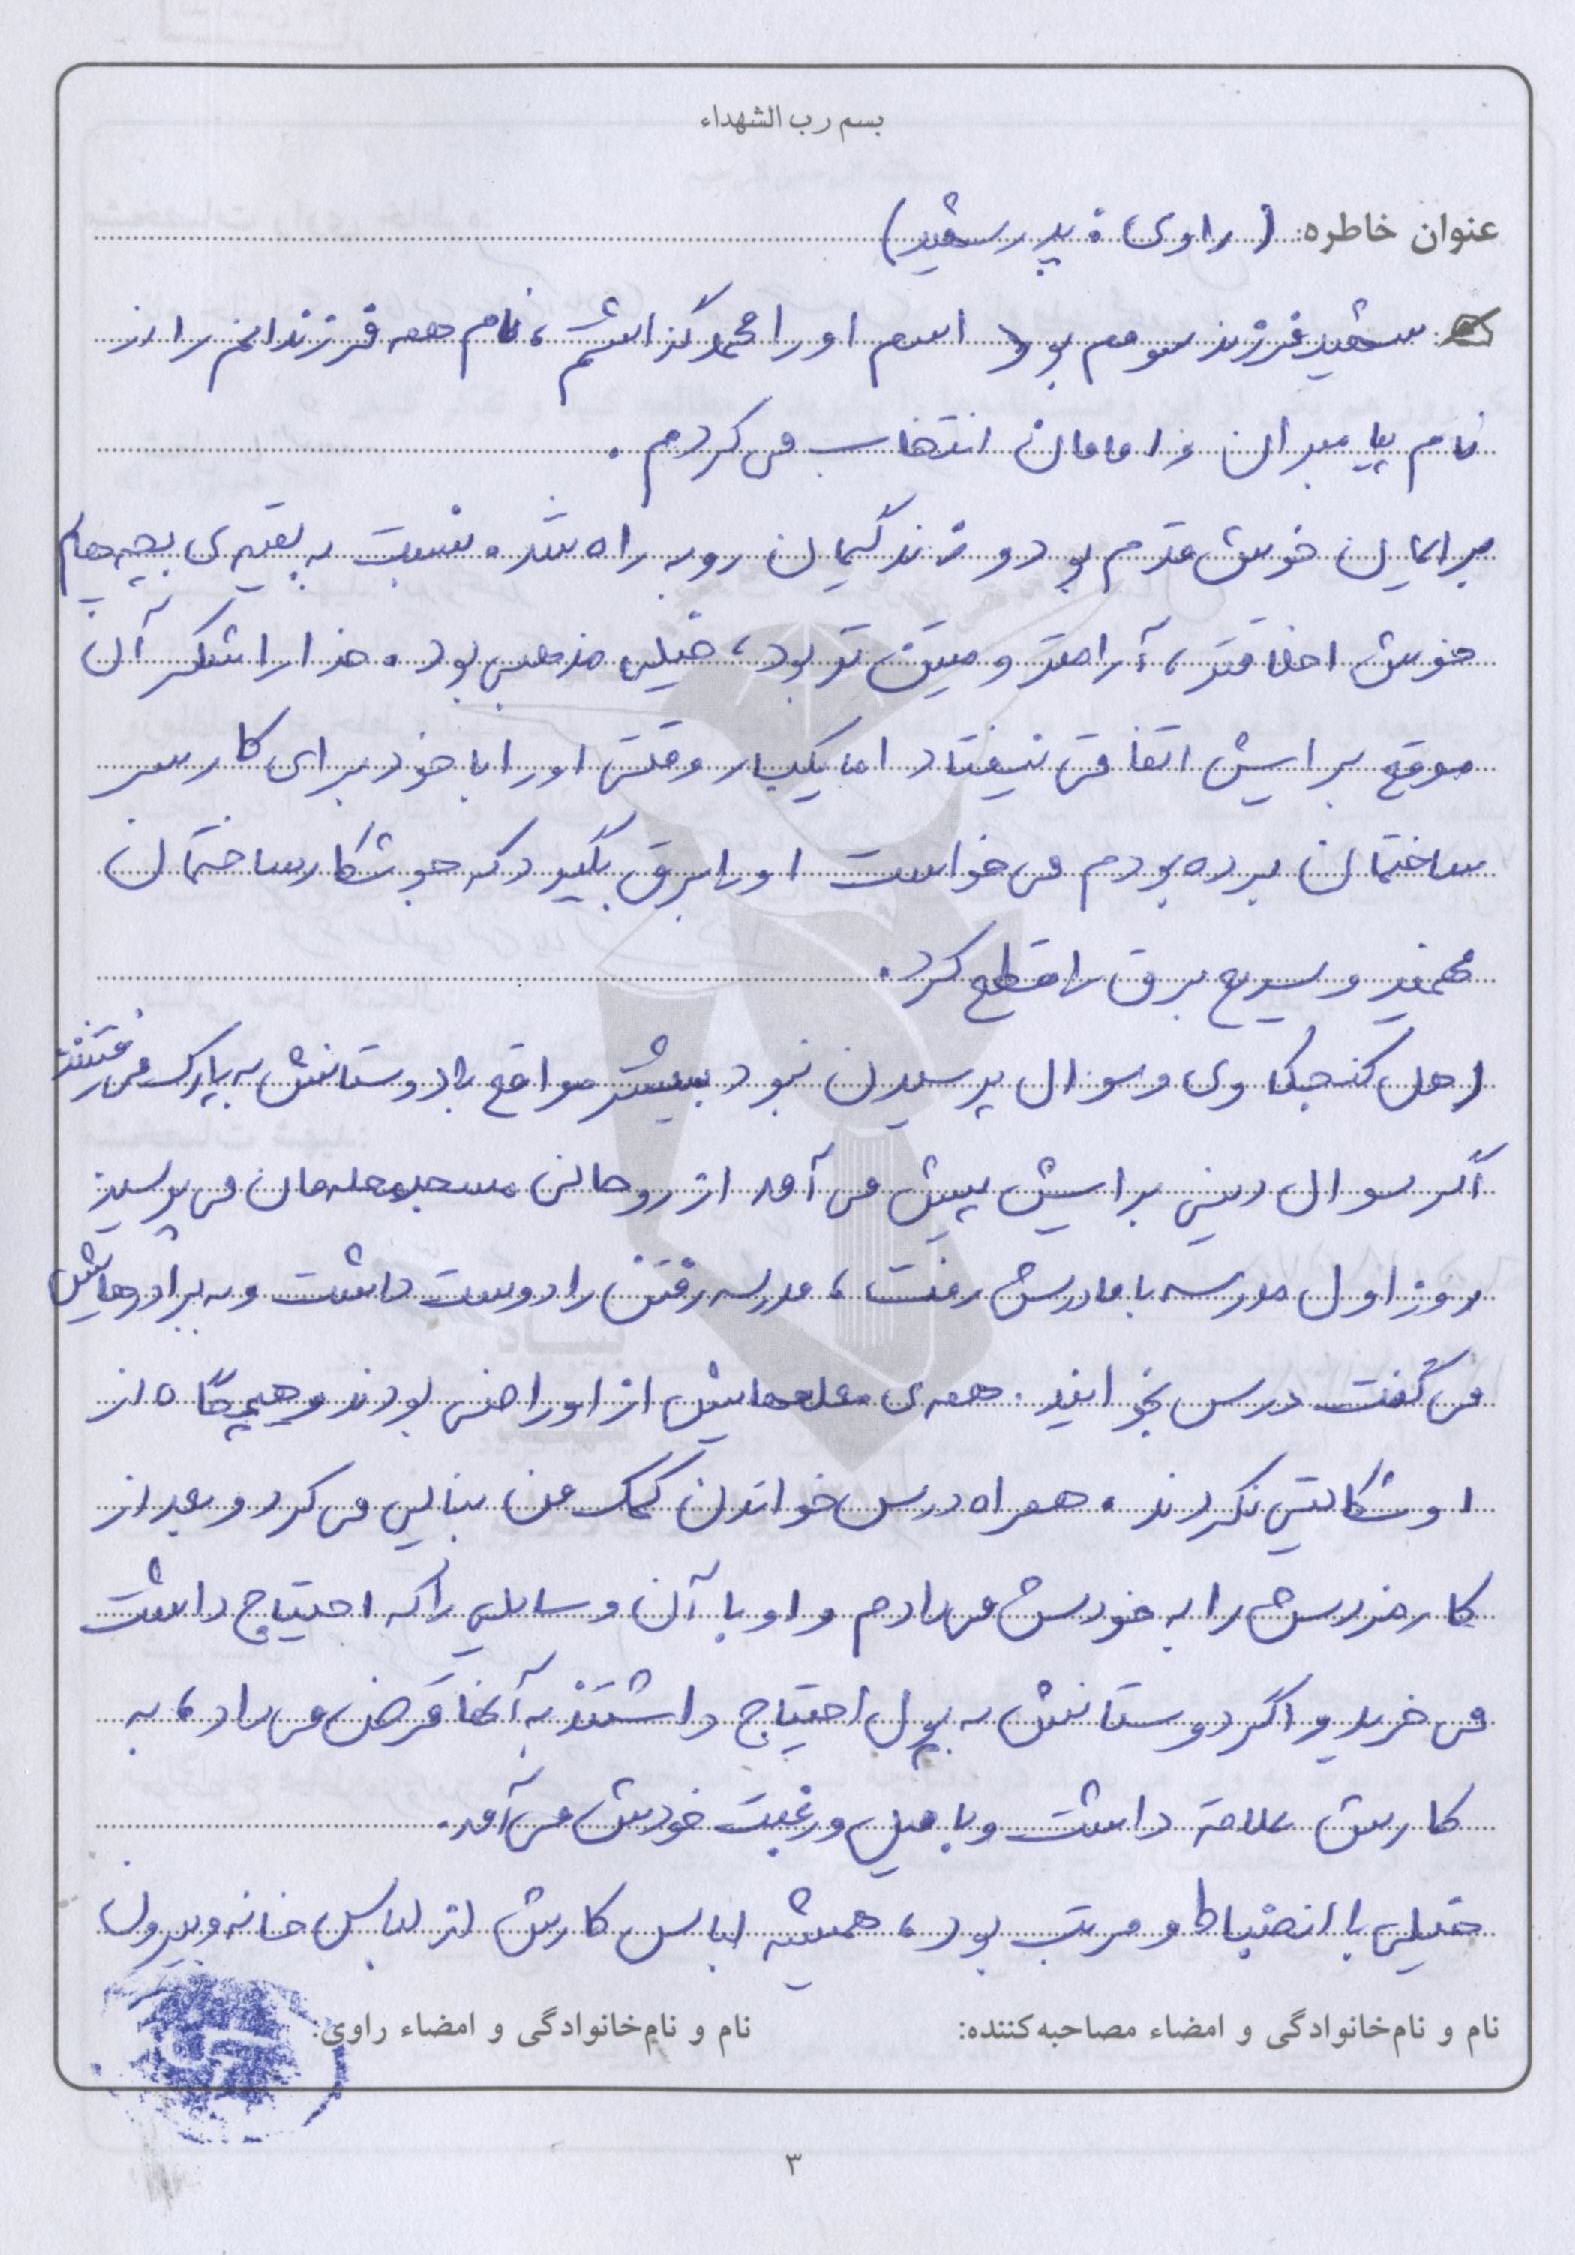 بسم رب الشهداء
عنوان خاطره: (راوی: پدر شهید)
شهید فرزند سومم بود اسم او را محمد گذاشتم، نام همه فرزندانم را از
نام پیامبران و امامان انتخاب می کردم.
برایمان خوش قدم بود و زندگیمان رو به راه شد. نسبت به بقیه ی بچه هایم
خوش اخلاقتر، آرامتر و متین تر بود، خیلی مذهبی بود. خدا را شکر آن
موقع برایش اتفاقی نیفتاد اما یکبار وقتی او را با خود برای کار سر
ساختمان برده بودم می خواست او را برق بگیرد که جوشکار ساختمان
فهمید و سریع برق را قطع کرد.
اهل کنجکاوی و سوال پرسیدن نبود بیشتر مواقع با دوستانش به پارک می رفتند
اگر سوال دینی برایش پیش می آمد از روحانی مسجد محله مان می پرسید
روز اول مدرسه با مادرش رفت، مدرسه رفتن را دوست داشت و به برادرهایش
می گفت درس بخوانید. همه ی معلمهایش از او راضی بودند و هیچگاه از
او شکایتی نکردند. همراه درس خواندن کمک من بنایی می کرد و بعد از
کار مزدش را به خودش می دادم و او با آن وسایلی را که احتیاج داشت
می خرید و اگر دوستانش به پول احتیاج داشتند به آنها قرض می داد، به
کارش علاقه داشت و با میل و رغبت خودش می آمد.
خیلی با انضباط و مرتب بود، همیشه لباس کارش از لباس خانه و بیرون
نام و نام‌خانوادگی و امضاء مصاحبه‌کننده: نام و نام‌خانوادگی و امضاء راوی:
۳